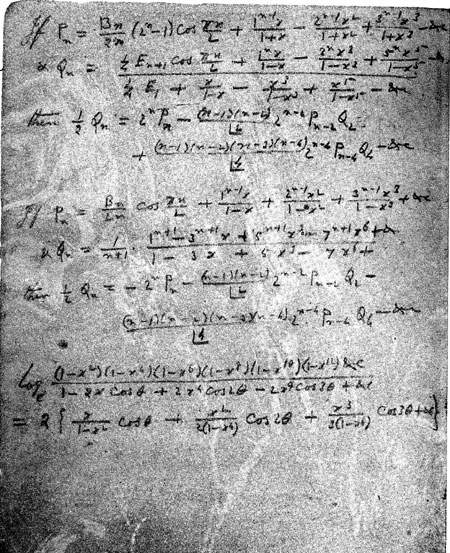 If P_n = B_n/2n (2^n-1) cos πn/2 + 1^{n-1}x/1+x - 2^{n-1}x^2/1+x^2 + 3^{n-1}x^3/1+x^3 - &c
& Q_n = ½ E_{n+1} cos πn/2 + 1^n x/1-x - 3^n x^3/1-x^3 + 5^n x^5/1-x^5 - &c
E_1 + x/1-x - x^3/1-x^3 + x^5/1-x^5 - &c
then ½ Q_n = 2^n P_n - (n-1)(n-2) 2^{n-2} P_{n-2} Q_2
+ (n-1)(n-2)(n-3)(n-4) 2^{n-4} P_{n-4} Q_4 - &c
If P_n = B_n/2n cos πn/2 + 1^{n-1}x/1-x + 2^{n-1}x^2/1-x^2 + 3^{n-1}x^3/1-x^3 + &c
& Q_n = 1/n+1 · 1^{n+1} - 3^{n+1}x + 5^{n+1}x^3 - 7^{n+1}x^6 + &c
1 - 3x + 5x^3 - 7x^6 +
then ½ Q_n = - 2^n P_n - (n-1)(n-2) 2^{n-2} P_{n-2} Q_2 -
(n-1)(n-2)(n-3)(n-4) 2^{n-4} P_{n-4} Q_4 - &c
log_e (1-x^2)(1-x^4)(1-x^6)(1-x^8)(1-x^10)(1-x^12) &c
1-2x cosθ + 2x^4 cos2θ - 2x^9 cos3θ + &c
= 2 { x/1-x^2 cosθ + x^2/2(1-x^4) cos2θ + x^3/3(1-x^6) cos3θ + &c }